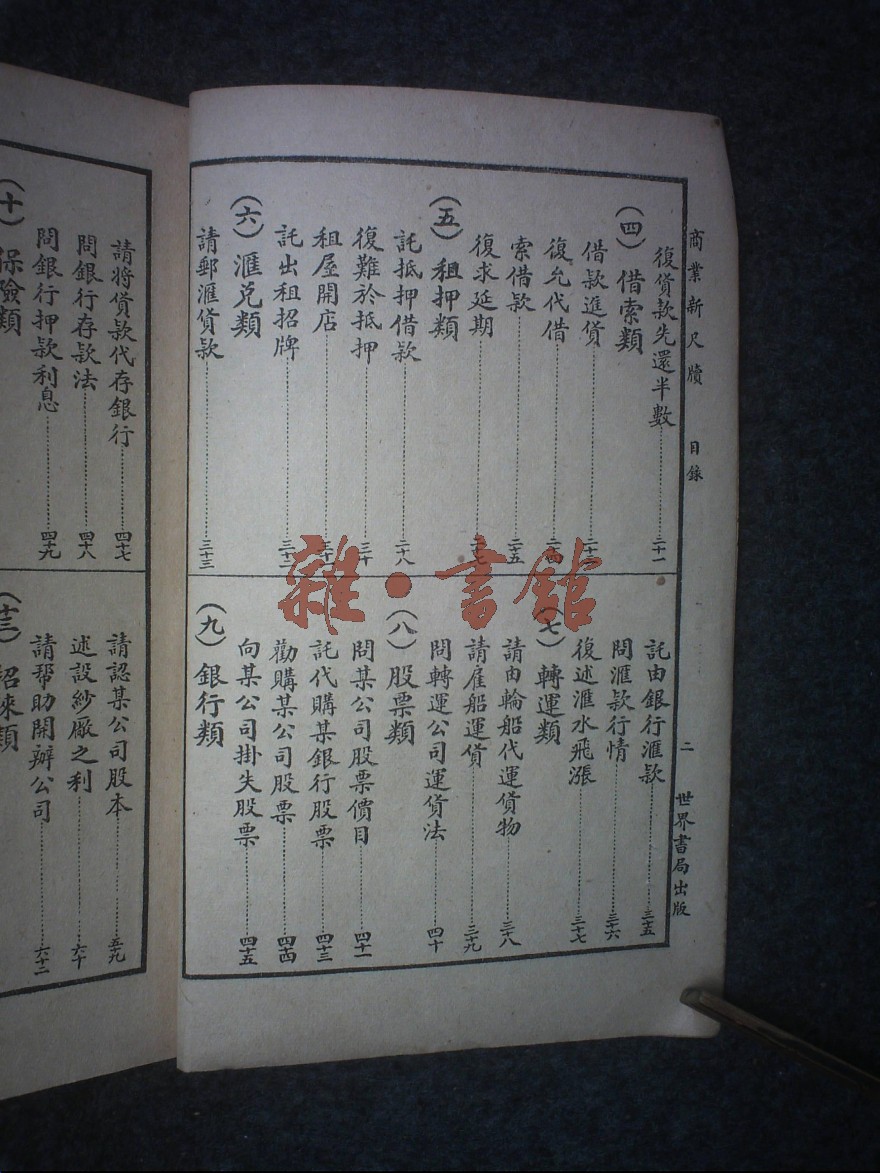 商業新尺牘 目錄 二 世界書局出版
復貨款先還半數 三十一
(四) 借索類
借款進貨
復允代借
索借款 二五
復求延期
(五) 租押類
託抵押借款 二八
復難於抵押 三十
租屋開店
託出租招牌
(六) 滙兑類
請郵滙貨款 三十三
託由銀行滙款 三十五
問滙款行情 三十六
復述滙水飛漲 三十七
(七) 轉運類
請由輪船代運貨物 三十八
請雇船運貨 三十九
問轉運公司運貨法 四十
(八) 股票類
問某公司股票價目 四十一
託代購某銀行股票 四十三
勸購某公司股票 四十四
向某公司掛失股票 四十五
(九) 銀行類
請將貨款代存銀行 四十七
問銀行存款法 四十八
問銀行押款利息 四十九
(十) 保險類
請認某公司股本 五十九
述設紗廠之利 六十
請幫助開辦公司 六十二
招徠類
雜·書館